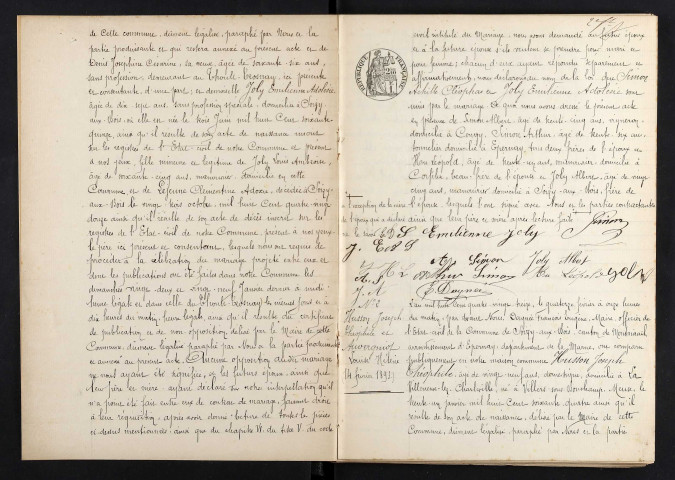 de cette commune, dûment légalisé, paraphé par Nous et la
partie produisante et qui restera annexé au présent acte et de
Denis Joséphine Césarine, sa veuve, âgée de soixante six ans,
sans profession, demeurant au Thoult-Trosnay, ici présente
et consentante, d'une part; et demoiselle Joly Emilienne Adolorée
âgée de dix sept ans, sans profession spéciale, domiciliée à Soizy-
aux-Bois, où elle est née le trois Juin mil huit cent soixante-
quinze, ainsi qu'il résulte de son acte de naissance inscrit
sur les registres de l'Etat-civil de notre Commune et présent
à nos yeux, fille mineure et légitime de Joly Louis
âgé de soixante cinq ans, manouvrier, domicilié en cette
Commune et de Lejeune Clémentine décédée à Soizy-
aux-Bois le vingt trois octobre mil huit cent quatre-vingt
douze ainsi qu'il résulte de son acte de décès inscrit sur les
registres de l'Etat-civil de notre Commune, présent à nos yeux;
le père ici présent et consentant, lesquels nous ont requis de
procéder à la célébration du mariage projeté entre eux et
dont les publications ont été faites dans notre Commune les
dimanches vingt deux et vingt-neuf Janvier dernier à midi
heure légale et dans celle du Thoult-Trosnay les mêmes jours et à
dix heures du matin, heure légale, ainsi qu'il résulte du certificat
de publication et de non opposition délivré par le Maire de cette
Commune, dûment légalisé paraphé par Nous et la partie produisante
et annexé au présent acte. Aucune opposition audit mariage
ne nous ayant été signifiée, et les futurs époux, ainsi que
leur père et mère, ayant déclaré sur notre interpellation qu'il
n'a point été fait entre eux de contrat de mariage, faisant droit
à leur réquisition, après avoir donné lecture de toutes les pièces
ci-dessus mentionnées, ainsi que du chapitre VI du titre V du code
civil intitulé du Mariage; nous avons demandé au futur époux
et à la future épouse s'ils veulent se prendre pour mari et
pour femme; chacun d'eux ayant répondu séparément et
affirmativement, nous déclarons au nom de la loi que Simon
Achille Cléophas et Joly Emilienne Adolorée sont
unis par le mariage. Et qui nous avons dressé le présent acte
en présence de Simon Albert, âgé de trente cinq ans, vigneron,
domicilié à Congy, Simon Arthur, âgé de trente-six ans,
tonnelier domicilié à Epernay, tous deux frères de l'époux et
âgé de trente-un ans, manouvrier, domicilié à
beau-frère de l'épouse et Joly Albert, âgé de vingt
cinq ans, manouvrier domicilié à Soizy-aux-Bois, frère de
l'épouse, lesquels ont signé avec Nous et les parties contractantes
après lecture faite
Simon
Emilienne Joly
Simon
Joly Albert
Simon
N° 2
Husson Joseph
Théophile et
14 février 1893
L'an mil huit cent quatre-vingt-treize, le quatorze février à onze heures
du matin, par devant Nous François Eugène, Maire, officier de
l'Etat civil de la Commune de Soizy-aux-Bois, canton de Montmirail
arrondissement d'Epernay, département de la Marne, ont comparu
publiquement en notre maison commune Husson Joseph
Théophile, âgé de vingt neuf ans, domestique, domicilié à La
Villeneuve-lez-Charleville, né à Meuse, le
trente-un janvier mil huit cent soixante quatre ainsi qu'il
résulte de son acte de naissance, délivré par le Maire de cette
Commune, dûment légalisé, paraphé par Nous et la partie